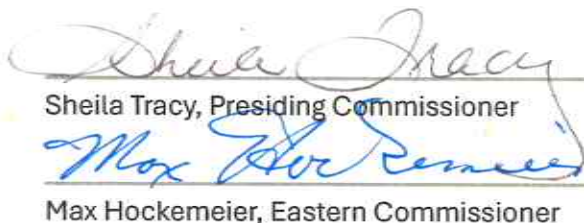 Sheila Tracy
Sheila Tracy, Presiding Commissioner
Max Hockemeier
Max Hockemeier, Eastern Commissioner